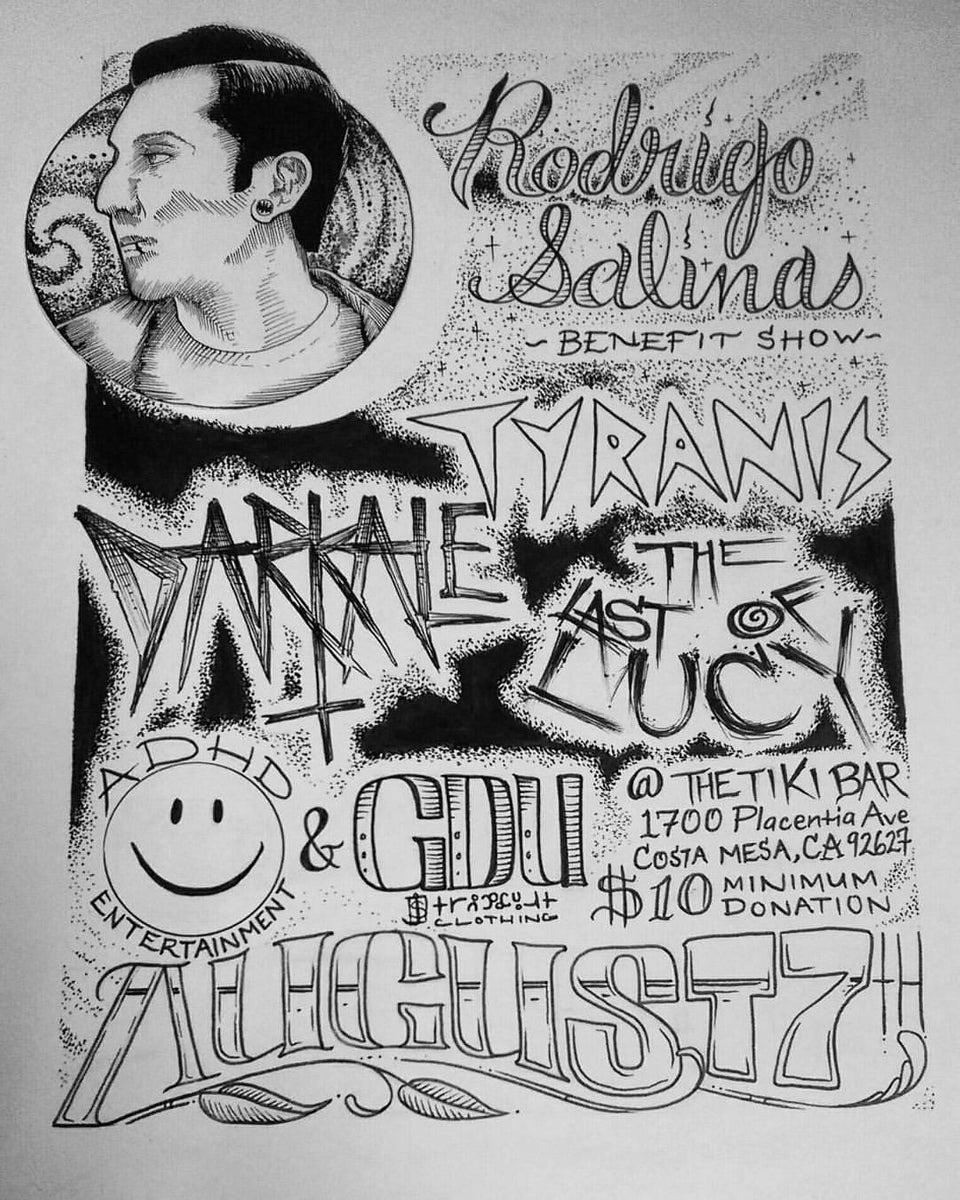 Rodrigo
Salinas
~BENEFIT SHOW~
TYRANIS
DARKALE
THE
LAST OF
LUCY
ADHD
ENTERTAINMENT
& GDU
CLOTHING
@ THE TIKI BAR
1700 Placentia Ave
COSTA MESA, CA 92627
$10 MINIMUM
DONATION
AUGUST 7TH